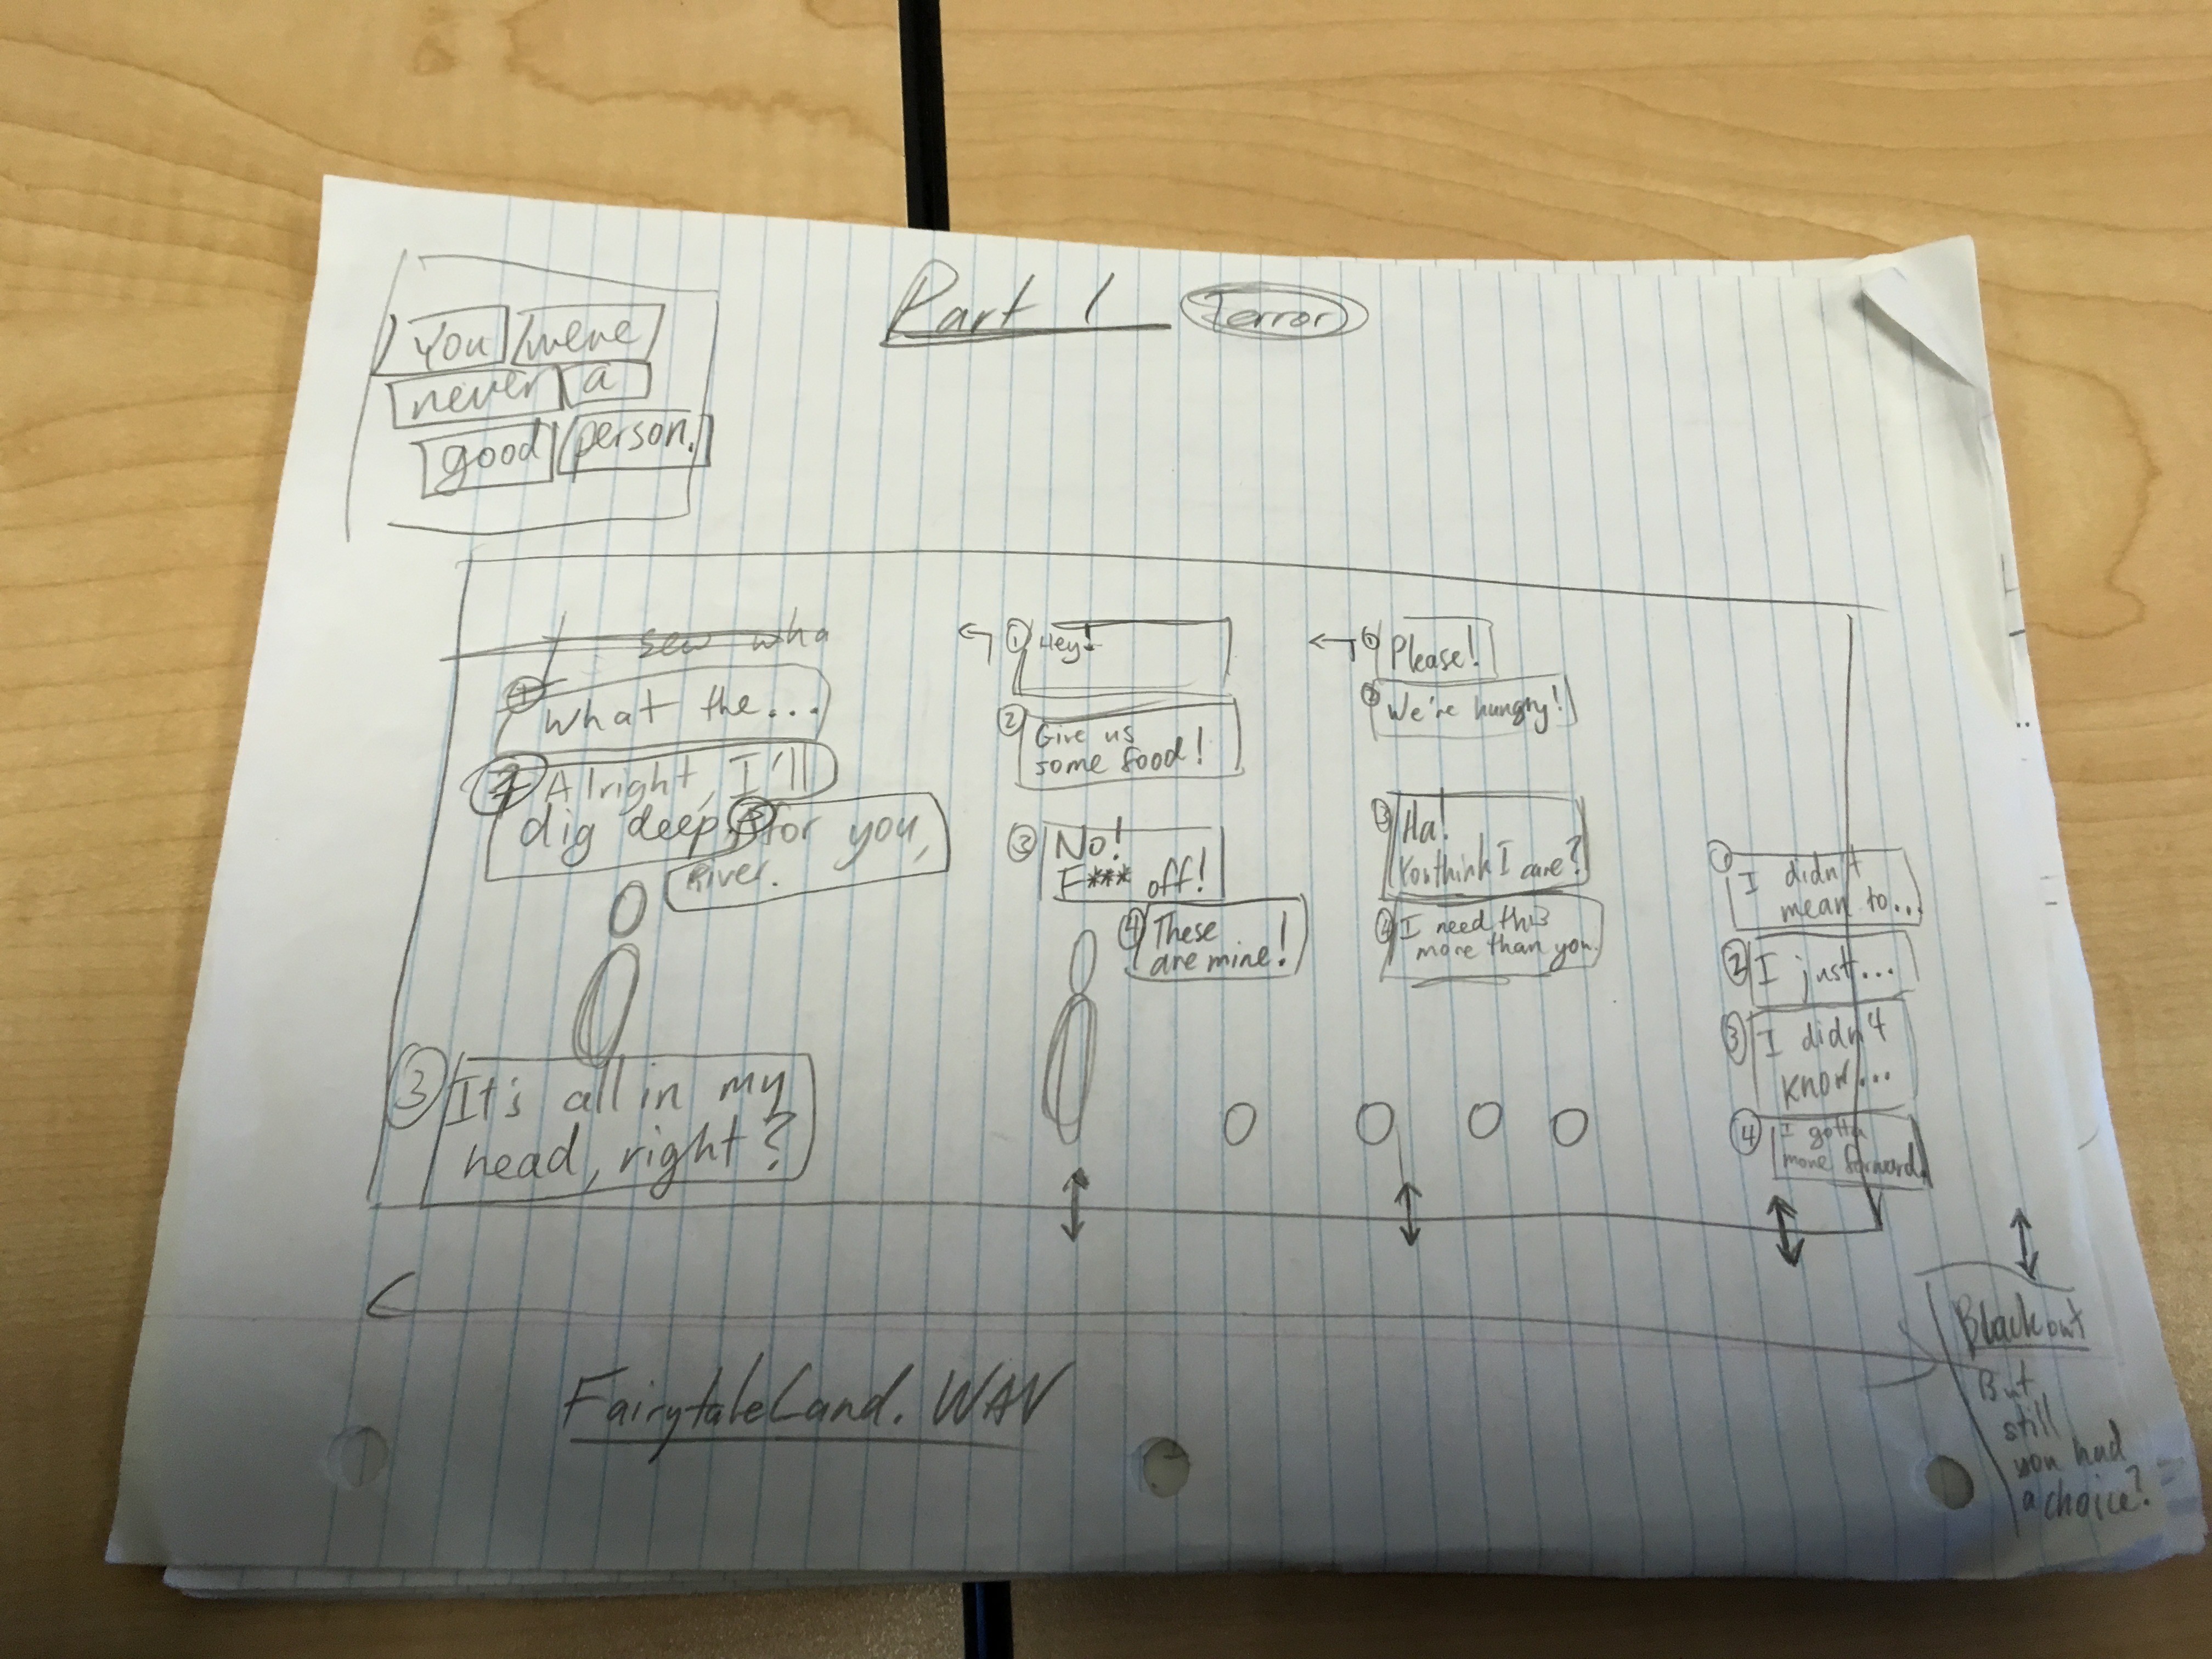 Part 1 Terror
You were
never a
good person.
sew wha
1 What the...
2 Alright, I'll
dig deep 3 for you,
River.
3 It's all in my
head, right?
1 Hey!
2 Give us
some food!
3 No!
F*** off!
4 These
are mine!
1 Please!
2 We're hungry!
3 Ha!
You think I care?
4 I need this
more than you.
1 I didn't
mean to...
2 I just...
3 I didn't
know...
4 I gotta
move forward.
FairytaleLand.WAV
Blackout
But
still
you had
a choice?